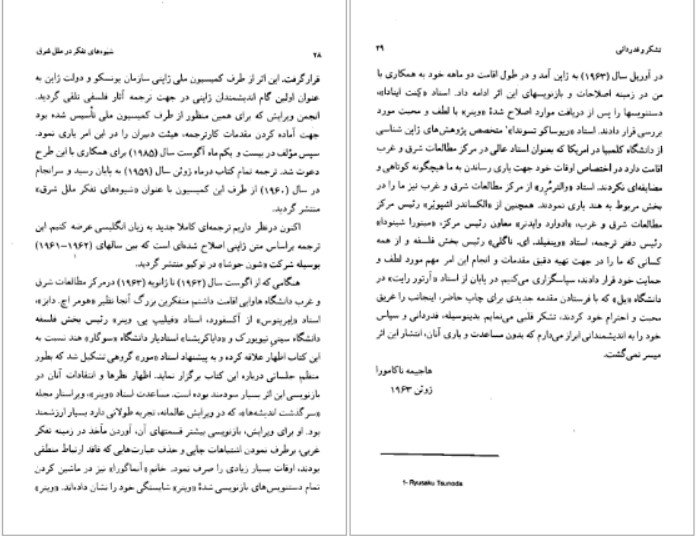 ۲۸ شیوه‌های تفکر در ملل شرق
قرارگرفت. این اثر از طرف کمیسیون ملی ژاپنی سازمان یونسکو و دولت ژاپن به
عنوان اولین گام اندیشمندان ژاپنی در جهت ترجمه آثار فلسفی تلقی گردید.
انجمن ویرایش که برای همین منظور از طرف کمیسیون ملی تأسیس شده بود
جهت آماده کردن مقدمات کارترجمه، هیئت دبیران را در این امر یاری نمود.
سپس مؤلف در بیست و یکم‌ماه آگوست سال (۱۹۸۵) برای همکاری با این طرح
دعوت شد. ترجمه تمام کتاب درماه ژوئن سال (۱۹۵۹) به پایان رسید و سرانجام
در سال (۱۹۶۰) از طرف این کمیسیون با عنوان «شیوه‌های تفکر ملل شرق»
منتشر گردید.
اکنون درنظر داریم ترجمه‌ای کاملا جدید به زبان انگلیسی عرضه کنیم. این
ترجمه براساس متن ژاپنی اصلاح شده‌ای است که بین سالهای (۱۹۶۲-۱۹۶۱)
بوسیله شرکت «شون جوشا» در توکیو منتشر گردید.
هنگامی که از اگوست سال (۱۹۶۲) تا ژانویه (۱۹۶۳) درمرکز مطالعات شرق
و غرب دانشگاه هاوایی اقامت داشتم متفکرین بزرگ آنجا نظیر «هومر اچ. دابز»،
استاد «اِمِریتوس» از آکسفورد، استاد «فیلیپ پی وینر» رئیس بخش فلسفه
دانشگاه سیتی نیویورک و «دایاکریشنا» استادیار دانشگاه «سوگار» هند نسبت به
این کتاب اظهار علاقه کرده و به پیشنهاد استاد «مور» گروهی تشکیل شد که بطور
منظم جلساتی درباره این کتاب برگزار نماید. اظهار نظرها و انتقادات آنان در
بازنویسی این اثر بسیار سودمند بوده است. مساعدت استاد «وینر»، ویراستار مجله
«سرگذشت اندیشه‌ها» که در ویرایش عالمانه، تجربه طولانی دارد بسیار ارزشمند
بود. او برای ویرایش، بازنویسی بیشتر قسمتهای آن، آوردن مآخذ در زمینه تفکر
غربی، برطرف نمودن اشتباهات چاپی و حذف عبارت‌هایی که فاقد ارتباط منطقی
بودند، اوقات بسیار زیادی را صرف نمود. خانم «آساگورا» نیز در ماشین کردن
تمام دستنویس‌های بازنویسی شدهٔ «وینر» شایستگی خود را نشان داده‌اند. «وینر»
تشکر و قدردانی ۲۹
در آوریل سال (۱۹۶۳) به ژاپن آمد و در طول اقامت دو ماهه خود به همکاری با
من در زمینه اصلاحات و بازنویسهای این اثر ادامه داد. استاد «کِنِت اینادا»،
دستنویسها را پس از دریافت موارد اصلاح شدهٔ «وینر» با لطف و محبت مورد
بررسی قرار دادند. استاد «ریوساکو تسوندا»۱ متخصص پژوهش‌های ژاپن شناسی
از دانشگاه کلمبیا در امریکا که بعنوان استاد عالی در مرکز مطالعات شرق و غرب
اقامت دارد در اختصاص اوقات خود جهت یاری رساندن به ما هیچگونه کوتاهی و
مضایقه‌ای نکردند. استاد «والترمُرِر» از مرکز مطالعات شرق و غرب نیز ما را در
بخش مربوط به هند یاری نمودند. همچنین از «الکساندر اشپوئِر» رئیس مرکز
مطالعات شرق و غرب، «ادوارد وایدنر» معاون رئیس مرکز، «مینورا شینودا»
رئیس دفتر ترجمه، استاد «وینفیلد، ای. ناگلی» رئیس بخش فلسفه و از همه
کسانی که ما را در جهت تهیه دقیق مقدمات و انجام این امر مهم مورد لطف و
حمایت خود قرار دادند، سپاسگزاری می‌کنیم در پایان از استاد «آرتور رایت» در
دانشگاه «یِل» که با فرستادن مقدمه جدیدی برای چاپ حاضر، اینجانب را غریق
محبت و احترام خود کردند، تشکر قلبی می‌نمایم. بدینوسیله، قدردانی و سپاس
خود را به اندیشمندانی ابراز می‌دارم که بدون مساعدت و یاری آنان، انتشار این اثر
میسر نمی‌گشت.
هاجیمه ناکامورا
ژوئن ۱۹۶۳
1- Ryusaku Tsunoda